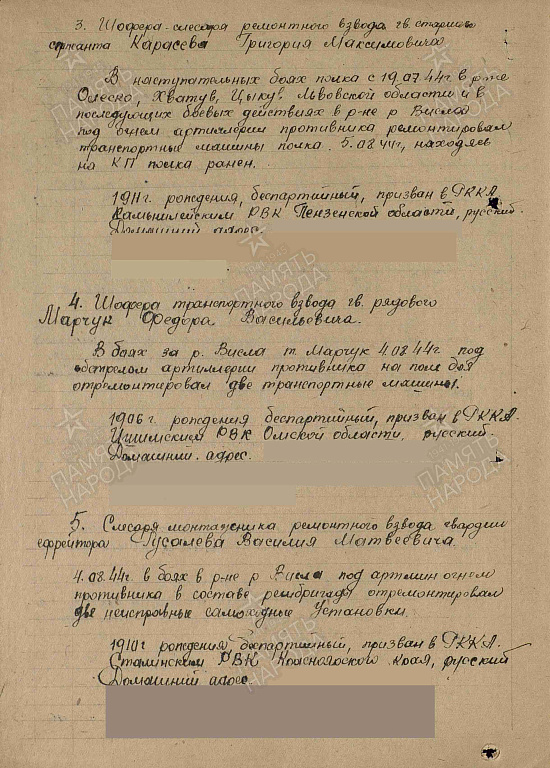 3. Шофера-слесаря ремонтного взвода гв. старшего
сержанта Карасева Григория Максимовича
В наступательных боях полка с 19.07.44г. в р-не
Олеско, Хватув, Цыкув Львовской области и в
последующих боевых действиях в р-не р Висла
под огнем артиллерии противника ремонтировал
транспортные машины полка. 5.08.44г, находясь
на КП полка ранен.
1911г. рождения, беспартийный, призван в РККА
РВК Пензенской области, русский.
Домашний адрес.
4. Шофера транспортного взвода гв. рядового
Марчук Федора Васильевича.
В боях за р. Висла т. Марчук 4.08.44г. под
обстрелом артиллерии противника на поле боя
отремонтировал две транспортные машины.
1906г. рождения беспартийный, призван в РККА.
Ишимским РВК Омской области, русский.
Домашний адрес.
5. Слесаря монтажника ремонтного взвода гвардии
ефрейтора Гусалева Василия Матвеевича.
4.08.44г. в боях в р-не р Висла под арт.мин огнем
противника в составе рембригады отремонтировал
две неисправные самоходные установки.
1910г рождения, беспартийный, призван в РККА.
Сталинским РВК Красноярского края, русский
Домашний адрес.
ПАМЯТЬ НАРОДА